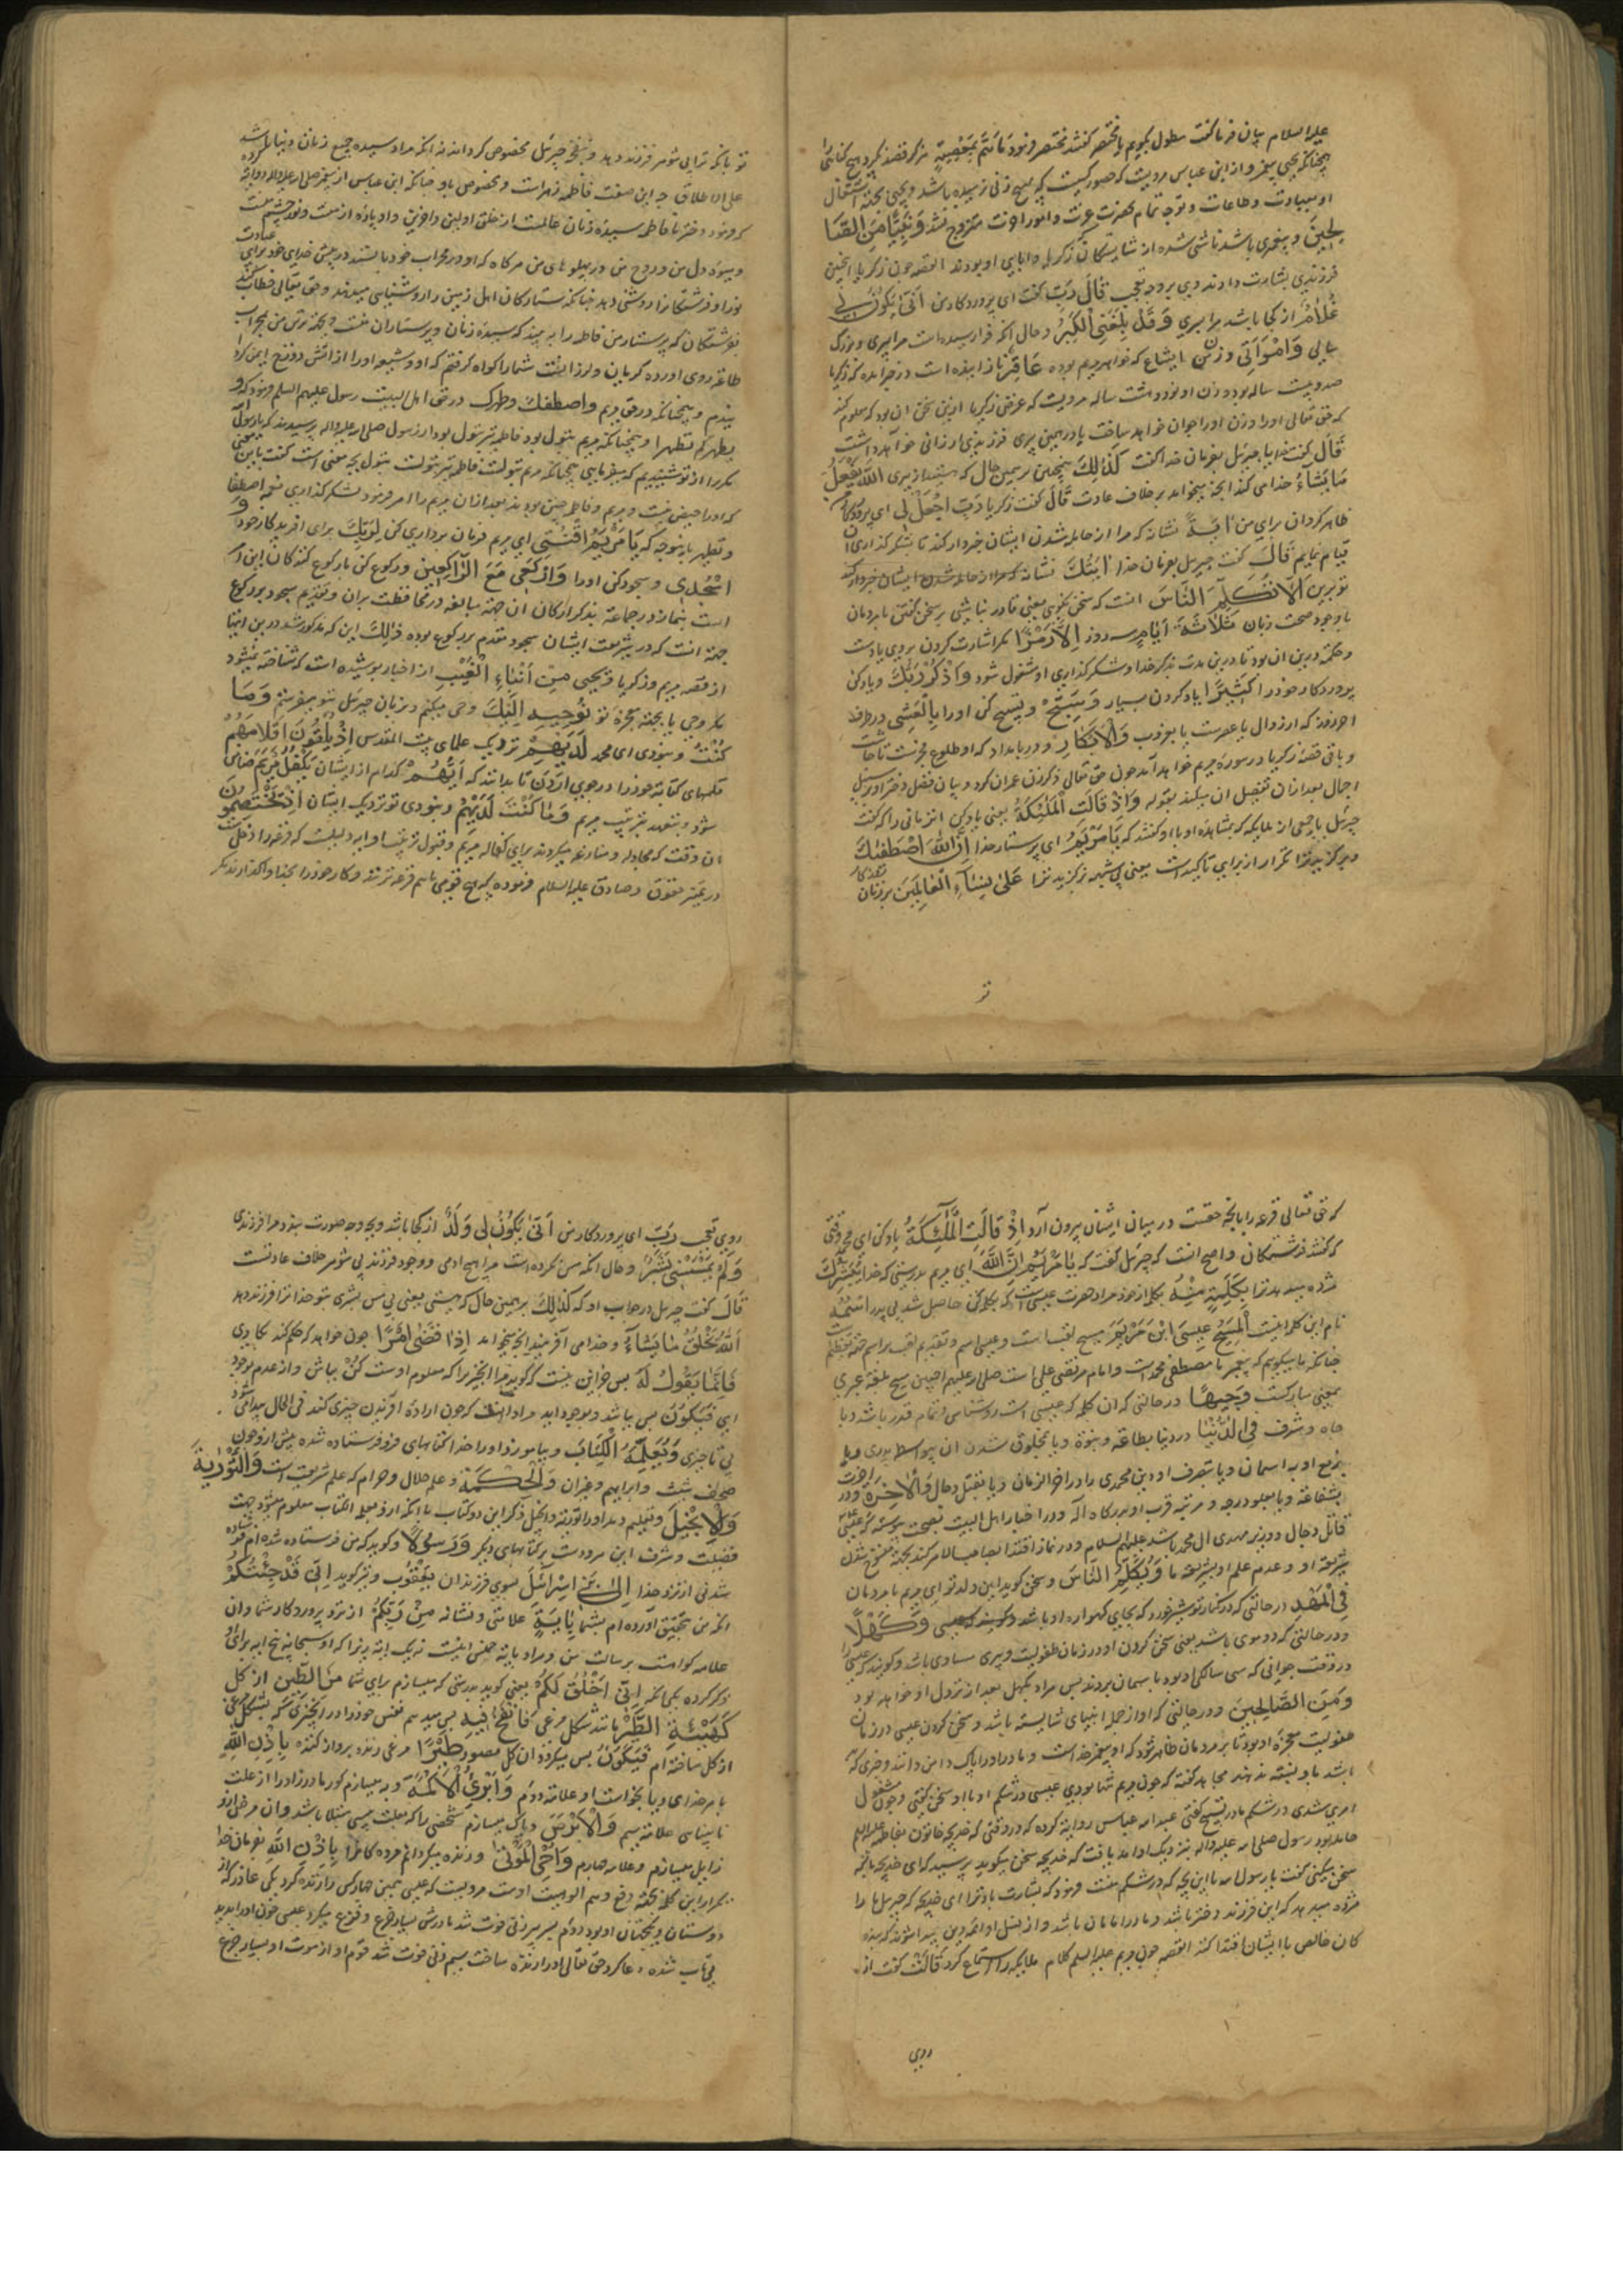 علیه السلام بیان فرما گفت مطول بگویم یا مختصر گفتند مختصر فرمود
همچنانکه یحیی پیغمبر و از ابن عباس مرویست که حصور کسیست که هیچ زنی نرسیده باشد و یحیی بجهة اشتغال
او بعبادت و طاعات و توجه تمام بحضرت عزت و امور آخرت متزوج نشد وَنَبِيًّا مِنَ الصَّا
لِحِينَ و پیغمبری باشد ناشی شده از شایستگان که زکریا و آبای او بودند القصه چون زکریا را بچنین
فرزندی بشارت دادند وی بر وجه تعجب قَالَ رَبِّ گفت ای پروردگار من أَنَّى يَكُونُ لِي
غُلَامٌ از کجا باشد مرا پسری وَقَدْ بَلَغَنِيَ الْكِبَرُ و حال آنکه فرا رسیده است مرا پیری و بزرگ
سالی وَامْرَأَتِي و زن من ایشاع که خواهر مریم بوده عَاقِرٌ نازاینده است
صد و بیست ساله بود و زن او نود و هشت ساله مرویست که غرض زکریا ازین سخن آن بود که معلوم کند
که حق تعالی او را و زن او را جوان خواهد ساخت یا در همین پیری فرزندی ارزانی خواهد داشت
قَالَ گفت خدا یا جبرئیل بفرمان خدا گفت كَذَلِكَ همچنین بر همین حال که هستید از پیری اللَّهُ يَفْعَلُ
مَا يَشَاءُ خدا می کند آنچه میخواهد بر خلاف عادت قَالَ گفت زکریا رَبِّ اجْعَلْ لِي ای پروردگار من
ظاهر گردان برای من آيَةً نشانه که مرا از حامله شدن ایشان خبردار کند تا بشکرگذاری آن
قیام نمایم قَالَ گفت جبرئیل بفرمان خدا آيَتُكَ نشانه که مرا از حامله شدن ایشان خبردار کند
تو برین أَلَّا تُكَلِّمَ النَّاسَ آنست که سخن نگوی یعنی قادر نباشی بر سخن گفتن با مردمان
با وجود صحت زبان ثَلَاثَةَ أَيَّامٍ سه روز إِلَّا رَمْزًا مگر اشارت کردن بروی یا دست
و حکمة درین آن بود تا درین مدت بذکر خدا و شکرگذاری او مشغول شود وَاذْكُرْ رَبَّكَ و یاد کن
پروردگار خود را كَثِيرًا یاد کردن بسیار وَسَبِّحْ و تسبیح کن او را بِالْعَشِيِّ در طرف
آخر روز که از زوال یا عصرست تا بغروب وَالْإِبْكَارِ و در بامداد که از طلوع فجرست تا چاشت
و باقی قصه زکریا در سوره مریم خواهد آمد چون حق تعالی ذکر زن عمران کرد و بیان فضل دختر او بر سبیل
اجمال بعد از آن تفصیل آن میکند بقوله وَإِذْ قَالَتِ الْمَلَائِكَةُ یعنی یاد کن آنزمانی را که گفت
جبرئیل با جمعی از ملایکه که بمشاهده او با او گفتند که يَا مَرْيَمُ ای پرستار خدا إِنَّ اللَّهَ اصْطَفَاكِ
و برگزید ترا تکرار از برای تاکیدست یعنی بی شبهه برگزید ترا عَلَى نِسَاءِ الْعَالَمِينَ بر زنان
تو
تو بآنکه ترا بی شوهر فرزند دهد و بنفخ جبرئیل مخصوص گرداند نه آنکه مراد سیده جمیع زنان دنیا باشد
علی الاطلاق چه این صفت فاطمه زهراست و مخصوص باو چنانکه ابن عباس از پیغمبر صلی الله علیه و اله روایة کرده
که فرمود دخترم فاطمه سیده زنان عالمست از خلق اولین و آخرین و او پاره از منست و نور چشم منست
و میوه دل من و روح من در پهلوهای من هرگاه که او در محراب خود بایستد در پیش خدای خود برای عبادت
نور او فرشتگانرا روشنی دهد چنانکه ستارگان اهل زمین را روشنایی میدهند و حق تعالی خطاب کند
بفرشتگان که پرستار من فاطمه را به بینید که سیده زنان و پرستاران منست
طاعت روی آورده گریان و لرزانست شما را گواه گرفتم که او و شیعه او را از آتش دوزخ ایمن گردا
نیدم و همچنانکه در حق مریم واصطفاک وطهرک در حق اهل البیت رسول علیهم السلم فرمود که و
یطهرکم تطهیرا و همچنانکه مریم بتول بود فاطمه نیز بتول بود از رسول صلی الله علیه و اله پرسیدند که یا رسول الله
مکرر از تو شنیدیم که میفرمایی همچنانکه مریم بتولست فاطمه نیز بتولست بتول بچه معنی است گفت باین معنی
که او را حیض نیست و مریم و فاطمه چنین بودند بعد از آن مریم را امر فرمود بشکرگذاری نعمه اصطفا
و تطهیر باینوجه که يَا مَرْيَمُ اقْنُتِي ای مریم فرمان برداری کن لِرَبِّكِ برای آفریدگار خود و
اسْجُدِي و سجود کن او را وَارْكَعِي مَعَ الرَّاكِعِينَ و رکوع کن با رکوع کنندگان این امر
است بنماز در جماعة بذکر ارکان آن جهة مبالغه در محافظت بران و تقدیم سجود بر رکوع
جهة آنست که در شریعت ایشان سجود مقدم بر رکوع بوده ذَلِكَ این که مذکور شد درین آیتها
از قصه مریم و زکریا و یحیی مِنْ أَنْبَاءِ الْغَيْبِ از اخبار پوشیده است که شناخته نمیشود
مگر بوحی یا بجهة معجزه تو نُوحِيهِ إِلَيْكَ وحی میکنم و بزبان جبرئیل بتو میفرستیم وَمَا
كُنْتَ و نبودی ای محمد لَدَيْهِمْ نزدیک علمای بیت المقدس إِذْ يُلْقُونَ أَقْلَامَهُمْ
قلمهای کتابة خود را در جوی اردن تا بدانند که أَيُّهُمْ کدام از ایشان يَكْفُلُ مَرْيَمَ ضامن
شود و متعهد بتربیت مریم وَمَا كُنْتَ لَدَيْهِمْ و نبودی تو نزدیک ایشان إِذْ يَخْتَصِمُونَ
آن وقت که مجادله و منازعه میکردند برای کفاله مریم
در تمیز حقوق و صادق علیه السلام فرموده که هیچ قومی با هم قرعه نزنند و کار خود را بخدا وا گذارند مگر
که حق تعالی قرعه را بآنچه حقست در میان ایشان بیرون آرد إِذْ قَالَتِ الْمَلَائِكَةُ یاد کن ای محمد وقتی
که گفتند فرشتگان و اصح آنست که جبرئیل گفت که يَا مَرْيَمُ إِنَّ اللَّهَ ای مریم بدرستی که خدا يُبَشِّرُكِ
مژده میدهد ترا بِكَلِمَةٍ مِنْهُ بکلمه از خود مراد حضرت عیسی است که بکلمه کن حاصل شد بی پدر اسْمُهُ
نام این کلمه اینست الْمَسِيحُ عِيسَى ابْنُ مَرْيَمَ مسیح لقبست و عیسی اسم و تقدیم لقب بر اسم جهة تعظیمست
چنانکه ما میگویم که پیغمبر ما مصطفی محمدست و امام مرتضی علی است صلی الله علیهم اجمعین مسیح بلغة عبری
بمعنی مبارکست وَجِيهًا در حالتی که آن کلمه که عیسی است روشناس و تمام قدر باشد و با
جاه و شرف فِي الدُّنْيَا در دنیا بطاعة و نبوة و یا بمخلوق شدن او بیواسطه پدری و یا
برفع او به آسمان و یا بتصرف او دین محمدی را در آخر الزمان و یا بقتل دجال وَالْآخِرَةِ و در آخرت
بشفاعة و یا بعلو درجه و مرتبه قرب او بدرگاه اله و در اخبار اهل البیت بصحت پیوسته که عیسی
قاتل دجال و وزیر مهدی آل محمد باشد علیهم السلام و در نماز اقتدا بصاحب الامر کند بجهة منسوخ شدن
شریعة او و عدم علم او بشریعة ما وَيُكَلِّمُ النَّاسَ و سخن گوید این ولد تو ای مریم با مردمان
فِي الْمَهْدِ در حالتی که در کنار تو شیر خورد که بجای گهواره او باشد وَكَهْلًا
و در حالتی که دو موی باشد یعنی سخن کردن او در زمان طفولیت و پیری مساوی باشد و گویند که عیسی را
در وقت جوانی که سی سالگی او بود به آسمان بردند پس مراد بکهل بعد از نزول او خواهد بود
وَمِنَ الصَّالِحِينَ و در حالتی که او از جمله انبیای شایسته باشد و سخن کردن عیسی در زمان
طفولیت معجزه او بود تا بر مردمان ظاهر شود که او پیغمبر خداست و مادر او را پاک دامن دانند
مجاهد گفته که چون مریم تنها بودی عیسی در شکم او با او سخن گفتی و چون مشغول
امری شدی در شکم مادر تسبیح گفتی عبد الله عباس روایة کرده که در وقتی که خدیجه خاتون بفاطمه علیها السلم
حامله بود رسول صلی الله علیه و اله بنزدیک او آمد یافت که خدیجه سخن میگوید پرسید که ای خدیجه با که
سخن میکنی گفت یا رسول الله با این بچه که در شکم منست فرمود که بشارت باد ترا ای خدیجه که جبرئیل مرا
مژده میدهد که این فرزند دختر باشد و مادر امامان باشد و از نسل او ائمه دین پیدا شوند که بنده
گان خالص با ایشان اقتدا کنند القصه چون مریم علیها السلم کلام ملایکه را استماع کرد قَالَتْ گفت از
روی
روی تعجب رَبِّ ای پروردگار من أَنَّى يَكُونُ لِي وَلَدٌ از کجا باشد و بچه وجه صورت بندد مرا فرزندی
وَلَمْ يَمْسَسْنِي بَشَرٌ و حال آنکه مس نکرده است مرا هیچ آدمی و وجود فرزند بی شوهر خلاف عادتست
قَالَ گفت جبرئیل در جواب او که كَذَلِكِ بر همین حال که هستی یعنی بی مس بشری بتو خدا ترا فرزند دهد
اللَّهُ يَخْلُقُ مَا يَشَاءُ و خدا می آفریند آنچه میخواهد إِذَا قَضَى أَمْرًا چون خواهد که حکم کند بکاری
فَإِنَّمَا يَقُولُ لَهُ پس جز این نیست که گوید مر آنچیز را که معلوم اوست كُنْ بباش و از عدم بوجود
آی فَيَكُونُ پس بباشد و بموجود آید مراد آنست که چون اراده آفریدن چیزی کند فی الحال پیدا میشود
بی تاخیری وَيُعَلِّمُهُ الْكِتَابَ و بیاموزد او را خدا کتابهای فرو فرستاده شده پیش ازو چون
صحف شیث و ابراهیم و غیر آن وَالْحِكْمَةَ و علم حلال و حرام که علم شریعتست وَالتَّوْرَاةَ
وَالْإِنْجِيلَ و تعلیم دهد او را توریة و انجیل ذکر این دو کتاب با آنکه از و یعلمه الکتاب معلوم میشود جهت
فضیلت و شرف این هر دوست بر کتابهای دیگر وَرَسُولًا و گوید که من فرستاده شده ام
شدنی از نزد خدا إِلَى بَنِي إِسْرَائِيلَ بسوی فرزندان یعقوب و نیز گوید أَنِّي قَدْ جِئْتُكُمْ
آنکه من بتحقیق آورده ام بشما بِآيَةٍ علامتی و نشانه مِنْ رَبِّكُمْ از نزد پروردگار شما و آن
علامه گواهست برسالت من و مراد بآیة جنس اینست نه یک آیة زیرا که او سبحانه پنج آیه برای او
ذکر کرده یکی آنکه أَنِّي أَخْلُقُ لَكُمْ یعنی گوید بدرستی که میسازم برای شما مِنَ الطِّينِ از گل
كَهَيْئَةِ الطَّيْرِ مانند شکل مرغی فَأَنْفُخُ فِيهِ پس میدمم نفس خود را در آنچیزی که بشکل مرغی
از گل ساخته ام فَيَكُونُ پس میگردد آن گل مصور طَيْرًا مرغی زنده پرواز کننده بِإِذْنِ اللَّهِ
بامر خدای و یا بخواست او علامة دوم وَأُبْرِئُ الْأَكْمَهَ و به میسازم کور مادرزاد را از علت
نابینایی علامة سیم وَالْأَبْرَصَ و پاک میسازم شخصی را که بعلت پیسی مبتلا باشد و آن مرض ازو
زایل میسازم و علامه چهارم وَأُحْيِي الْمَوْتَى و زنده میگردانم مرده گانرا بِإِذْنِ اللَّهِ بفرمان خدا
تکرار این کلمه بجهة دفع وهم الوهیت اوست مرویست که عیسی بهمین چهار کس را زنده کرد یکی عاذر که از
دوستان و یکجهتان او بود دوم پسر پیرزنی فوت شد مادرش بسیار جزع و فزع میکرد عیسی چون او را بدید
بی تاب شده دعا کرد حق تعالی او را زنده ساخت سیم زنی فوت شد قوم او از موت او بسیار جزع